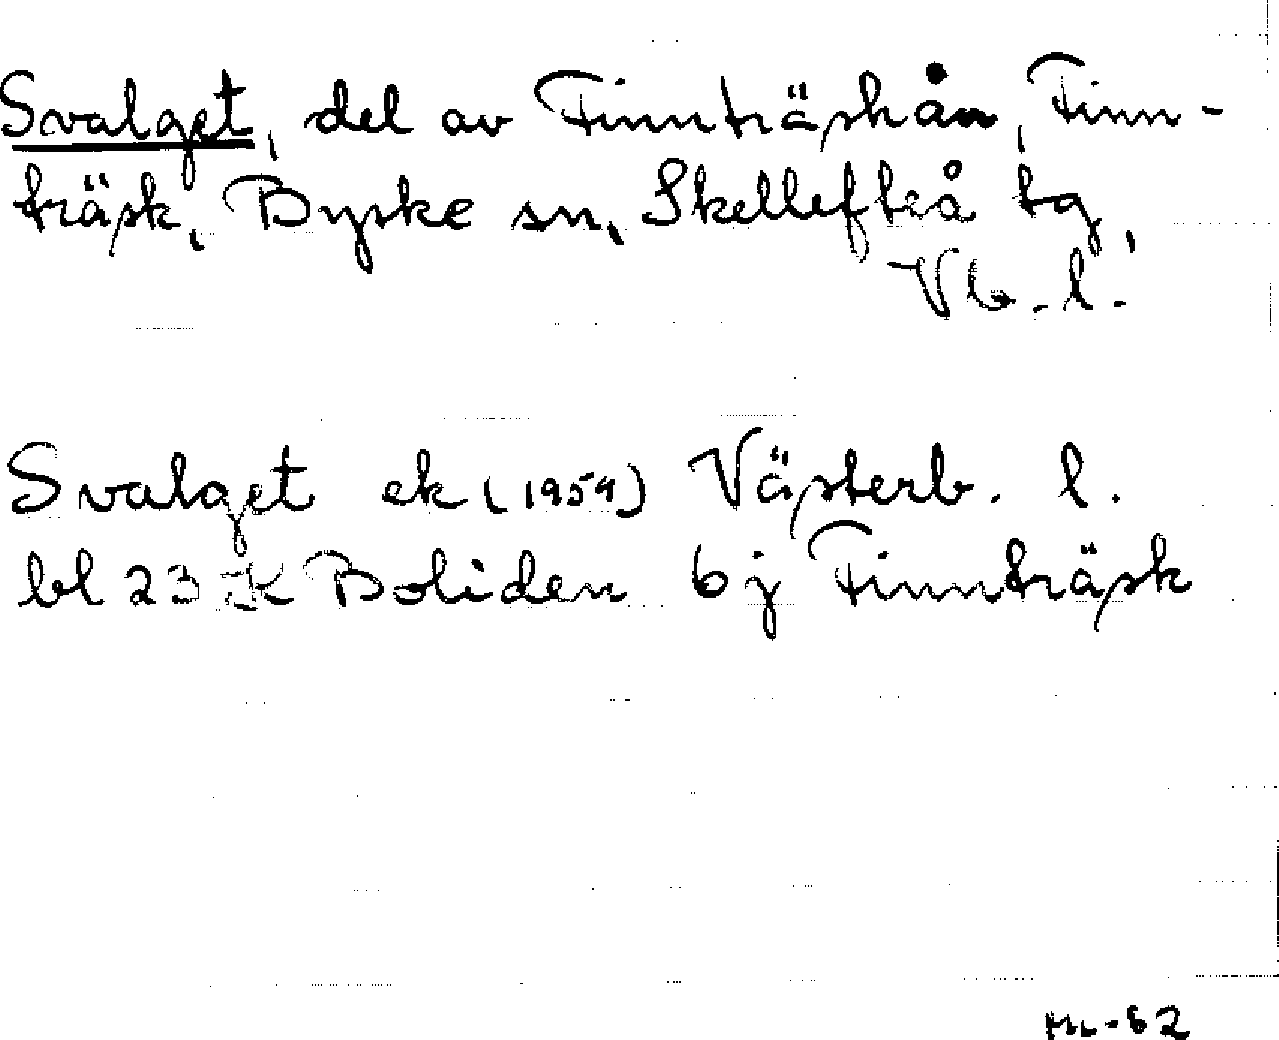 Svalget, del av Finnträskån, Finn-
träsk, Byske sn, Skellefteå tg,
Vb. l.
Svalget ek (1959) Västerb. l.
bl 23 K Boliden bj Finnträsk